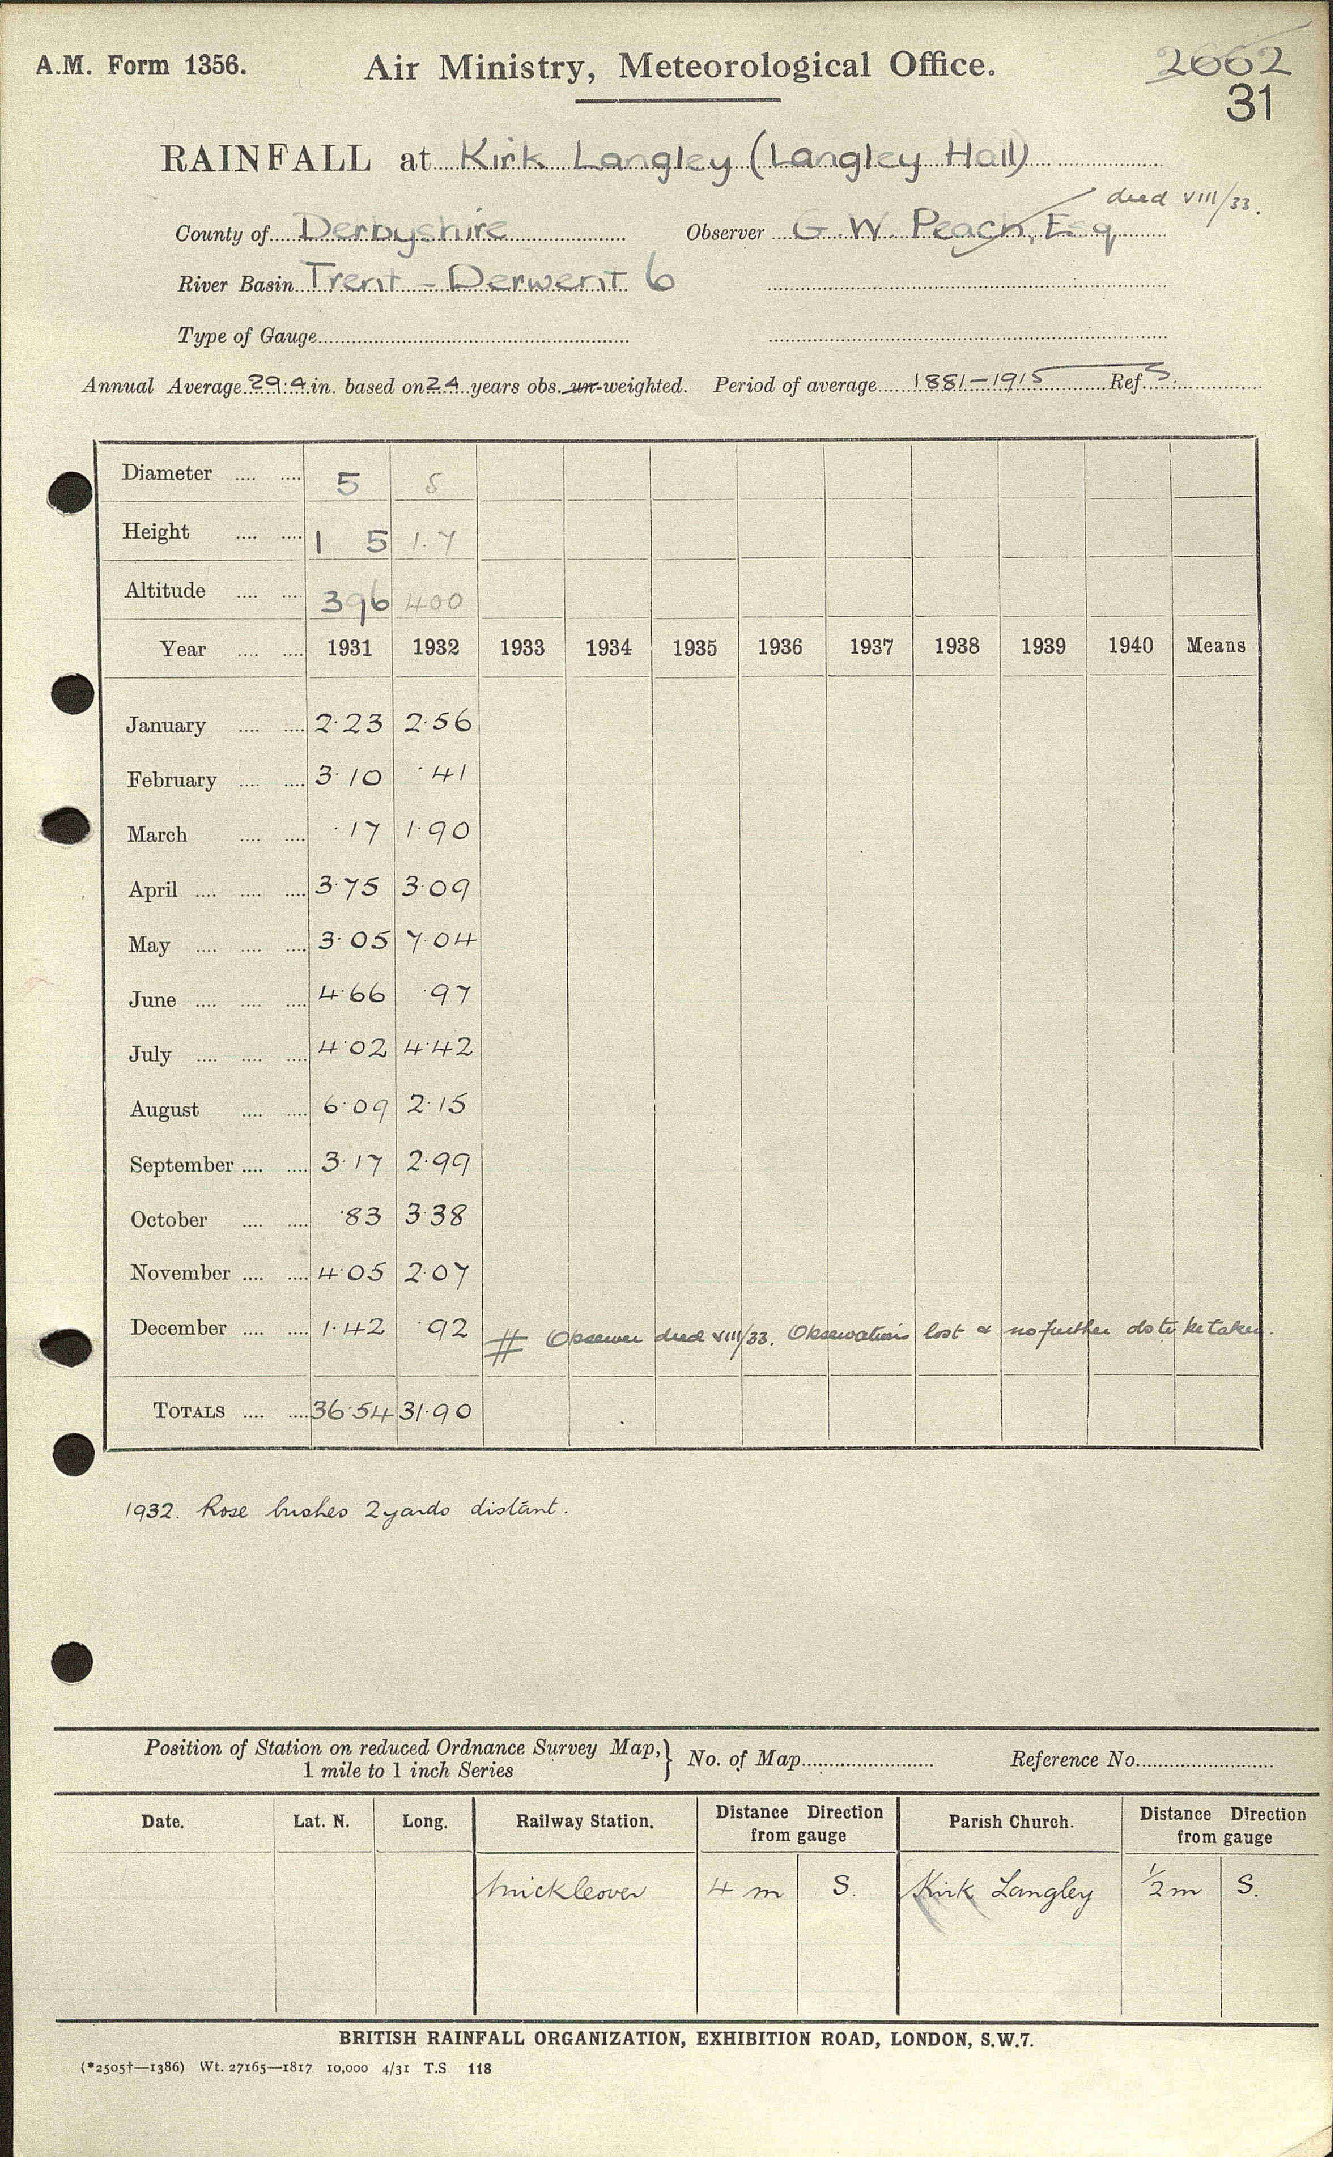 A.M. Form 1356.
Air Ministry, Meteorological Office.
2662
31
RAINFALL at Kirk Langley (Langley Hall)
died VIII/33.
County of Derbyshire Observer G. W. Peach, Esq
River Basin Trent - Derwent 6
Type of Gauge
Annual Average 29.4 in. based on 24 years obs. un-weighted. Period of average 1881-1915 Ref. S.
Diameter 5 5
Height 1 5 1.7
Altitude 396 400
Year 1931 1932 1933 1934 1935 1936 1937 1938 1939 1940 Means
January 2.23 2.56
February 3.10 .41
March .17 1.90
April 3.75 3.09
May 3.05 7.04
June 4.66 .97
July 4.02 4.42
August 6.09 2.15
September 3.17 2.99
October .83 3.38
November 4.05 2.07
December 1.42 .92 # Observer died VIII/33. Observations lost & no further obs to be taken.
TOTALS 36.54 31.90
1932. Rose bushes 2 yards distant.
Position of Station on reduced Ordnance Survey Map,} No. of Map Reference No.
1 mile to 1 inch Series
Date. Lat. N. Long. Railway Station. Distance Direction from gauge Parish Church. Distance Direction from gauge
Mickleover 4 m S. Kirk Langley 1/2 m S.
BRITISH RAINFALL ORGANIZATION, EXHIBITION ROAD, LONDON, S.W.7.
(*2505†—1386) Wt. 27165—1817 10,000 4/31 T.S 118